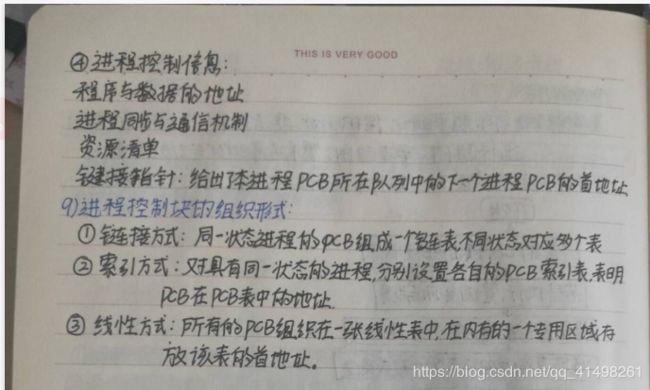 THIS IS VERY GOOD
④进程控制信息:
程序与数据的地址
进程同步与通信机制
资源清单
链接指针:给出了本进程PCB所在队列中的下一个进程PCB的首地址
9)进程控制块的组织形式:
①链接方式:同一状态进程的PCB组成一个链表,不同状态对应多个表
②索引方式:对具有同一状态的进程,分别设置各自的PCB索引表,表明
PCB在PCB表中的地址.
③线性方式:所有的PCB组织在一张线性表中,在内存的一个专用区域存
放该表的首地址。
https://blog.csdn.net/qq_41498261